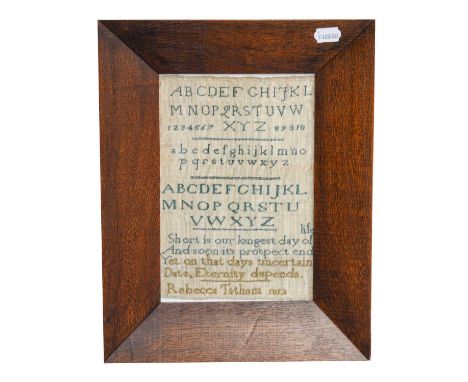 ABCDEFGHIJKL
MNOPQRSTUVW
1234567 XYZ 8 9 0 10
abcdefghijklmno
pqrstuvwxyz
ABCDEFGHIJKL
MNOPQRSTU
VWXYZ
life
Short is our longest day of
And soon its prospect end
Yet on that days uncertain
Date, Eternity depends.
Rebecca Tatham